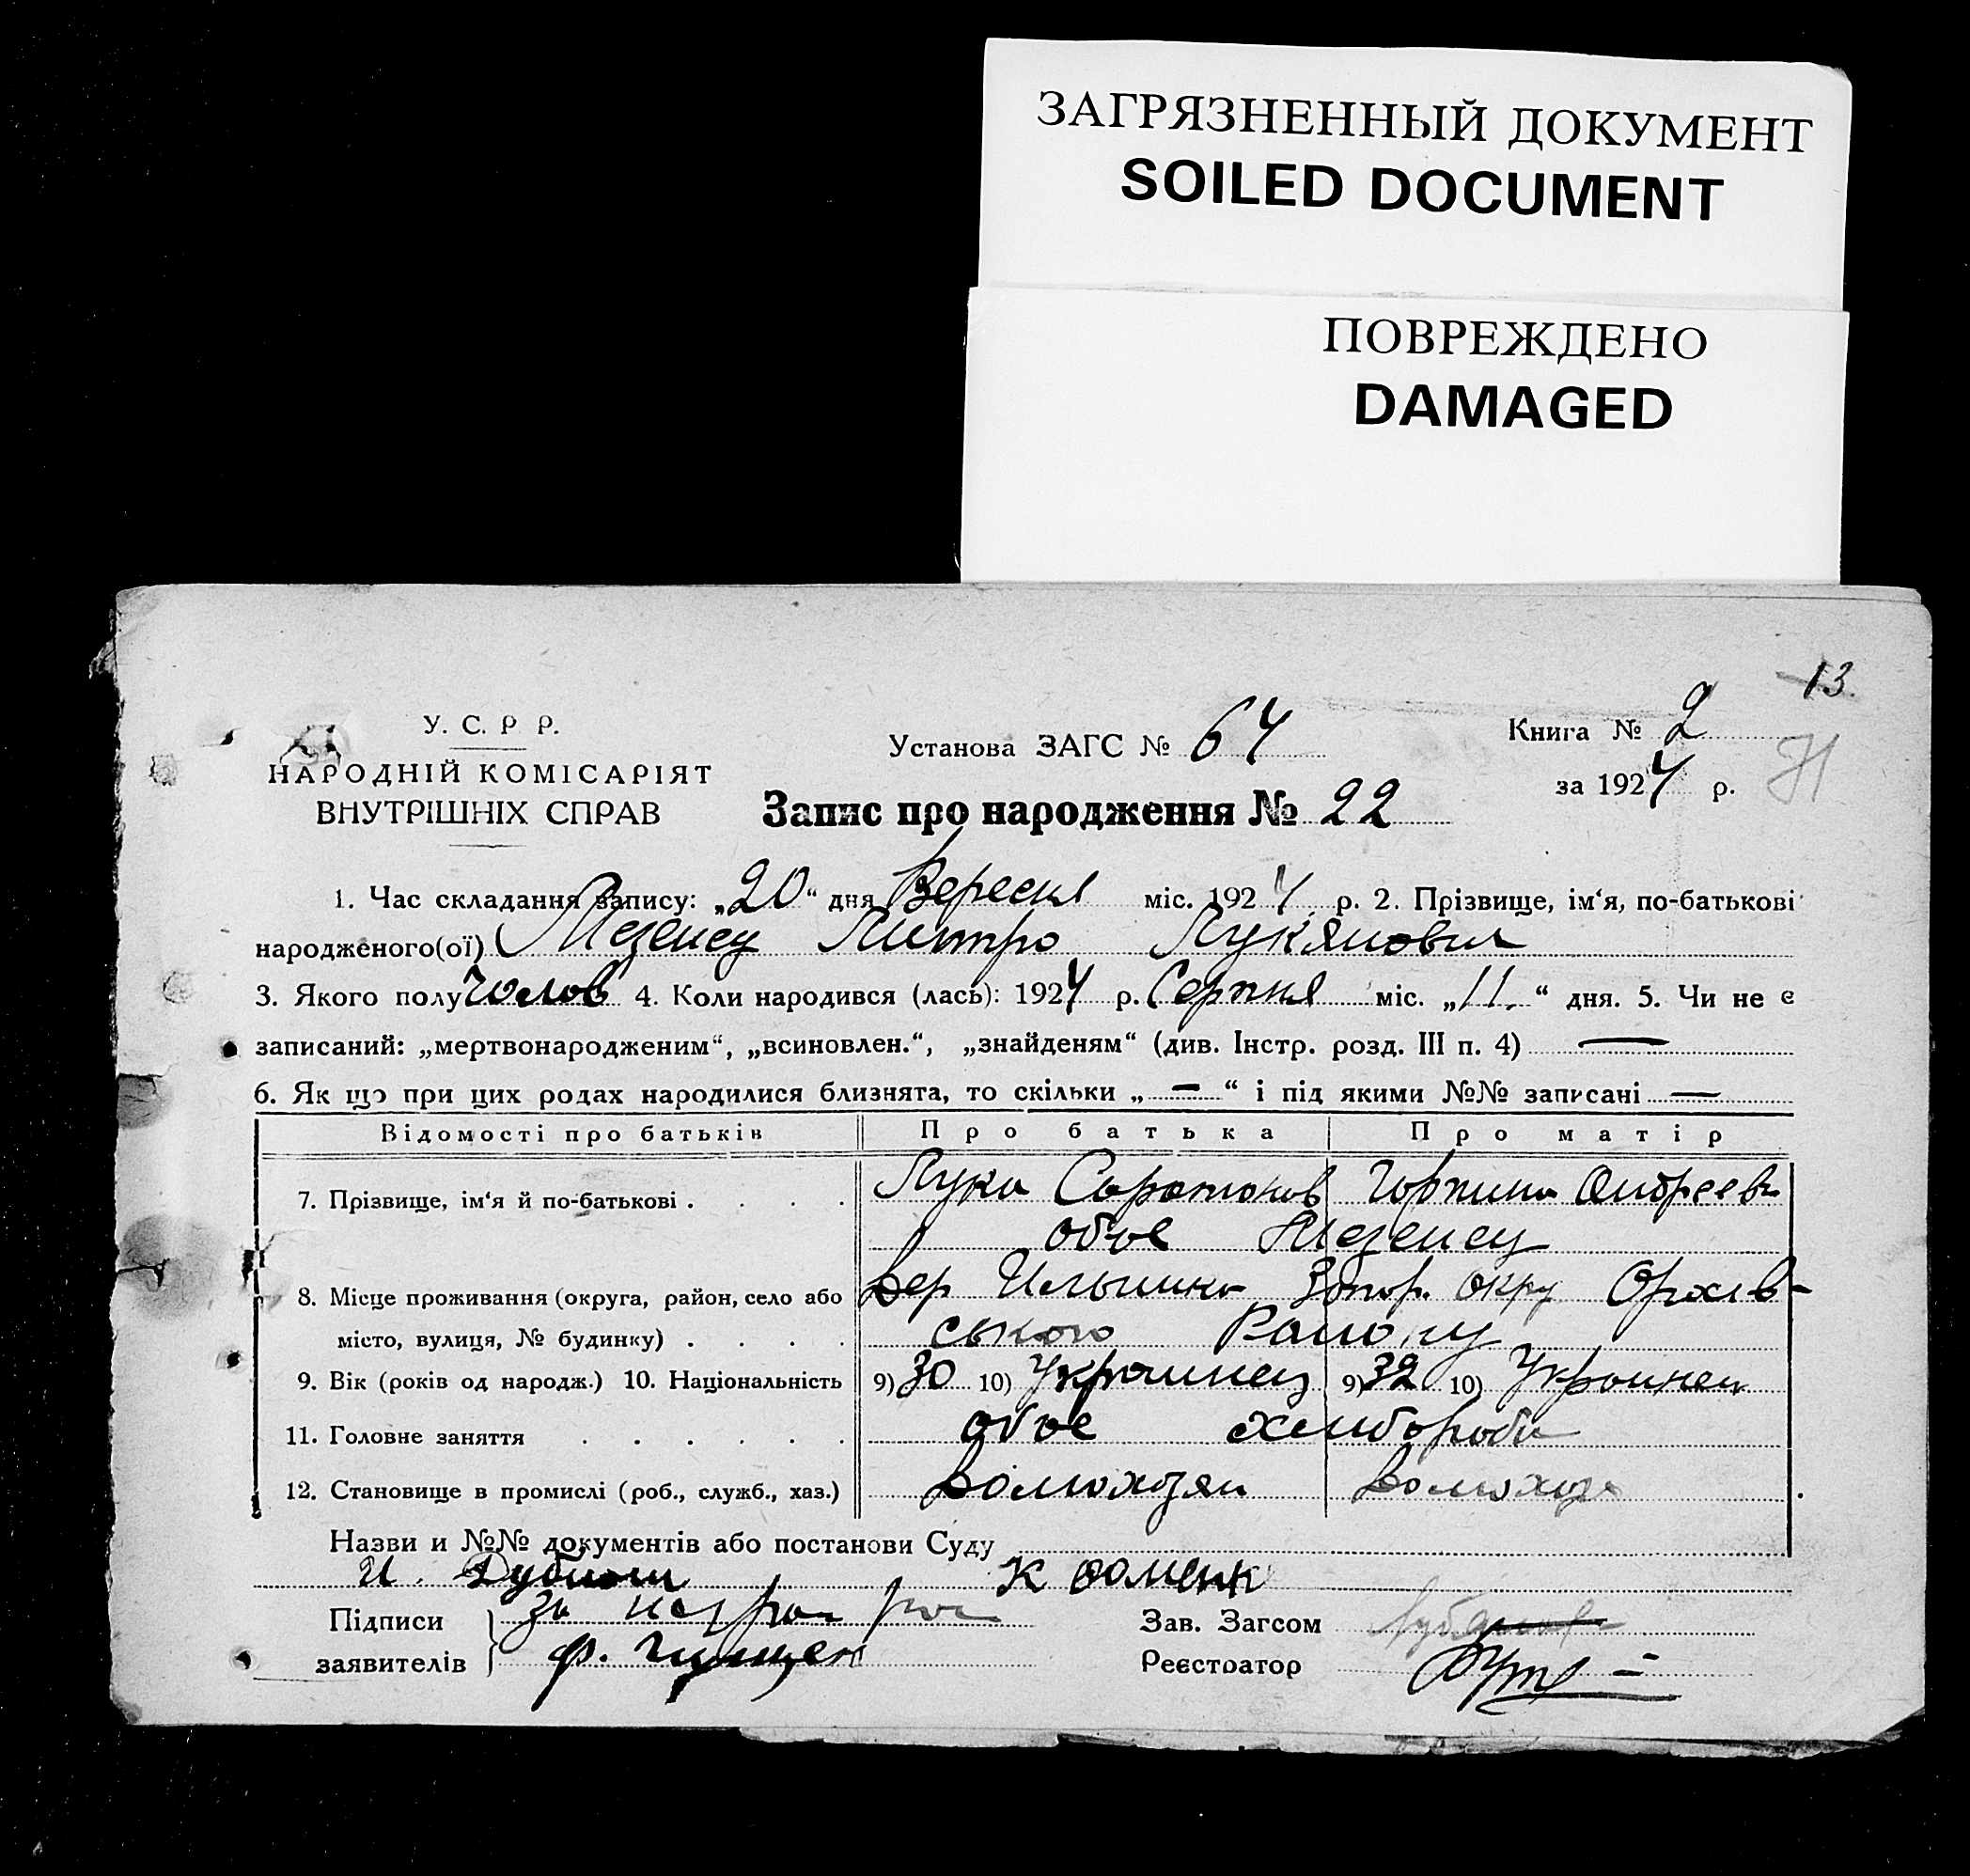 ЗАГРЯЗНЕННЫЙ ДОКУМЕНТ
SOILED DOCUMENT
ПОВРЕЖДЕНО
DAMAGED
13.
У. С. Р Р.
НАРОДНІЙ КОМІСАРІЯТ
ВНУТРІШНІХ СПРАВ
Установа ЗАГС № 64
Книга № 2
за 1924 р.
Запис про народження № 22
1. Час складання запису: „20“ дня Вересня міс. 1924 р. 2. Прізвище, ім‘я, по-батькові
народженого(ої) Мезенец Митро Лукянович
3. Якого полу чолов 4. Коли народився (лась): 1924 р. Серпня міс. „11.“ дня. 5. Чи не є
записаний: „мертвонародженим“, „всиновлен.“, „знайденям“ (див. Інстр. розд. III п. 4) —
6. Як що при цих родах народилися близнята, то скільки „—“ і під якими №№ записані —
Відомості про батьків Про батька Про матір
7. Прізвище, ім‘я й по-батькові . . . . Лука Горпина Андреевн
обое Мезенец
8. Місце проживання (округа, район, село або Запор. окру Оріхів-
місто, вулиця, № будинку) . . . . ського Району
9. Вік (років од народж.) 10. Національність 9) 30 10) Украинец 9) 32 10) Украинец
11. Головне заняття . . . . . . обое хлибороби
12. Становище в промислі (роб., служб., хаз.) Домохозяи Домохозя
Назви и №№ документів або постанови Суду
К
Підписи за
заявителів Ф.
Зав. Загсом
Реєстратор